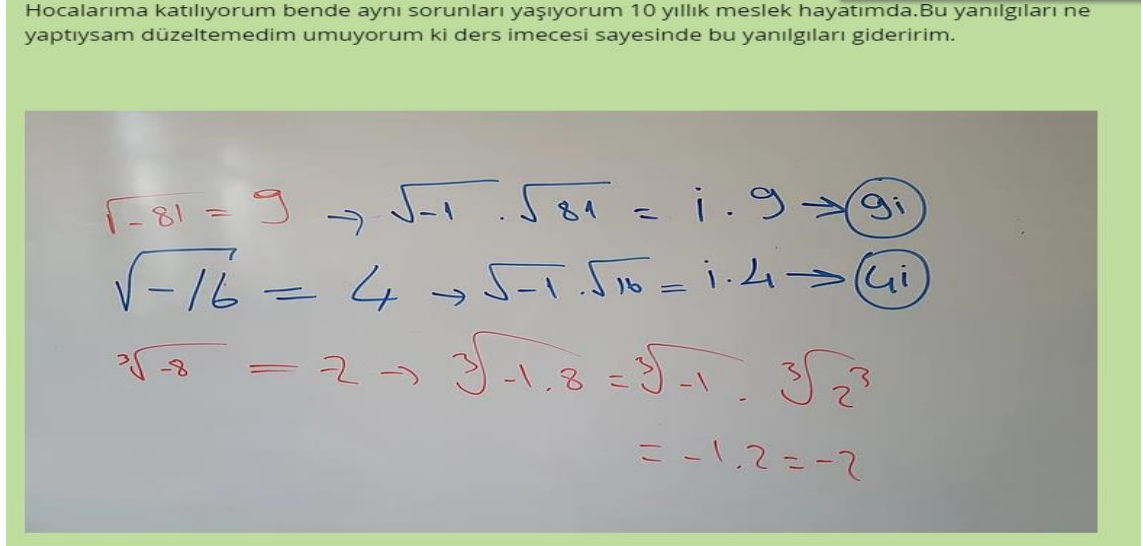 Hocalarıma katılıyorum bende aynı sorunları yaşıyorum 10 yıllık meslek hayatımda.Bu yanılgıları ne
yaptıysam düzeltemedim umuyorum ki ders imecesi sayesinde bu yanılgıları gideririm.
√-81 = 9 → √-1 . √81 = i . 9 → 9i
√-16 = 4 → √-1 . √16 = i . 4 → 4i
³√-8 = -2 → ³√-1.8 = ³√-1 . ³√2³
= -1.2 = -2